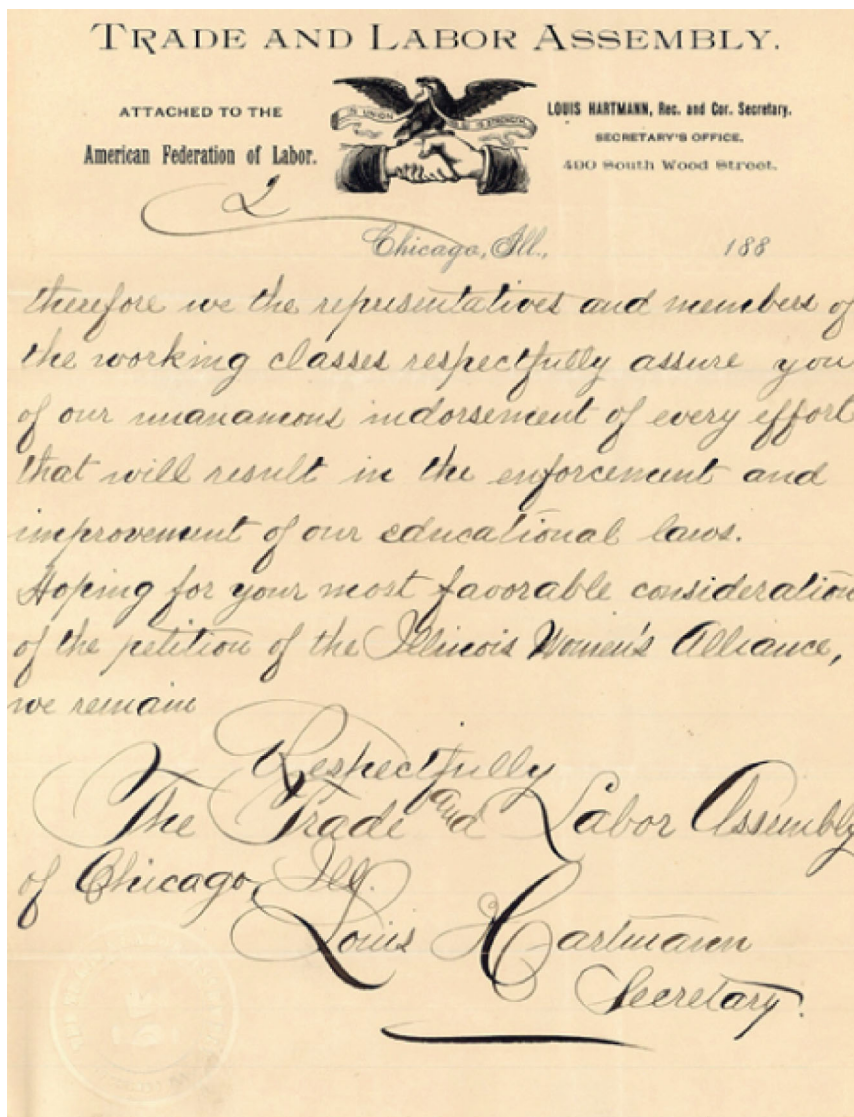 TRADE AND LABOR ASSEMBLY.
ATTACHED TO THE
American Federation of Labor.
IN UNION IS STRENGTH
LOUIS HARTMANN, Rec. and Cor. Secretary.
SECRETARY'S OFFICE,
490 South Wood Street.
2
Chicago, Ill., 188
therefore we the representatives and members of
the working classes respectfully assure you
of our unanamous indorsement of every effort
that will result in the enforcement and
improvement of our educational laws.
Hoping for your most favorable consideration
of the petition of the Illinois Women's Alliance,
we remain
Respectfully
The Trade and Labor Assembly
of Chicago, Ill.
Louis Hartmann
Secretary.